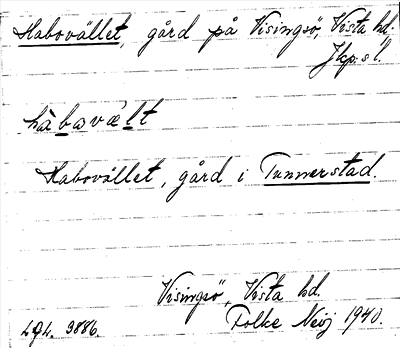 Habovället, gård på Visingsö, Vista hd.
Jkp.s l.
Habovället, gård i Tunnerstad.
Visingsö, Vista hd.
Folke Neij 1940.
3886.